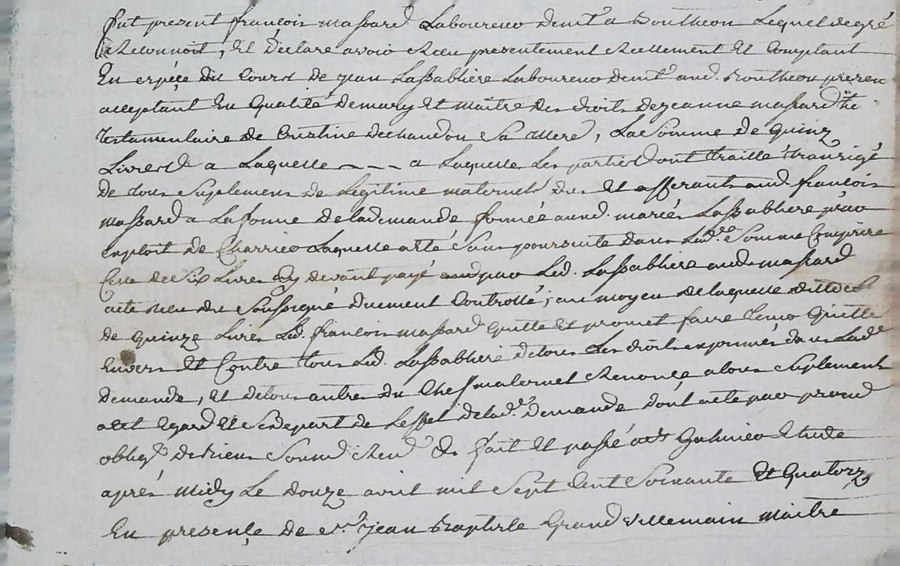 fut present françois massard Laboureur demt a Bontheon Lequel de gré
a Reconnoit, Et Declare avoir Receu presentement Reellement Et Comptant
En espéce du Cours de jean Lassabliere Laboureur demt aud. Bontheon presen
acceptant En qualité de mary Et maitre des droits de jeanne massard htie
testamentaire de Cristine Dechandon Sa mere, La Somme de quinz
Livres a Laquelle --- a Laquelle Les parties ont traille transigé
de tous Suplemens de Legitime maternels dus Et afferants aud françois
massard a La forme de la demande formée aud. mariés Lassabliere par
exploit de Charrier Laquelle a eté Sans poursuite dans Lad.e Somme Comprise
Celle de Six Livres Cy devant payé par Led. Lassabliere aud. massard
acte Receu du Soussigné duement Controllé, au moyen de laquelle dittes
de quinze Livres Led. françois massard quitte Et promet faire tenir quitte
Envers Et Contre tous Led. Lassabliere de tous Les droits exprimés dans Lad.e
demande, Et de tous autres du Chef maternel Renonce a tous Suplemens
a cet Egard Et Se depart de Leffet de lad.e demande dont acte par promd
oblig. de biens Soumd. Rend. &c fait Et passé a St Galmier Etude
aprés midy Le douze avril mil Sept Cent Soixante Et quatorz
En presençe de Sr jean Baptiste Grand villemain maitre